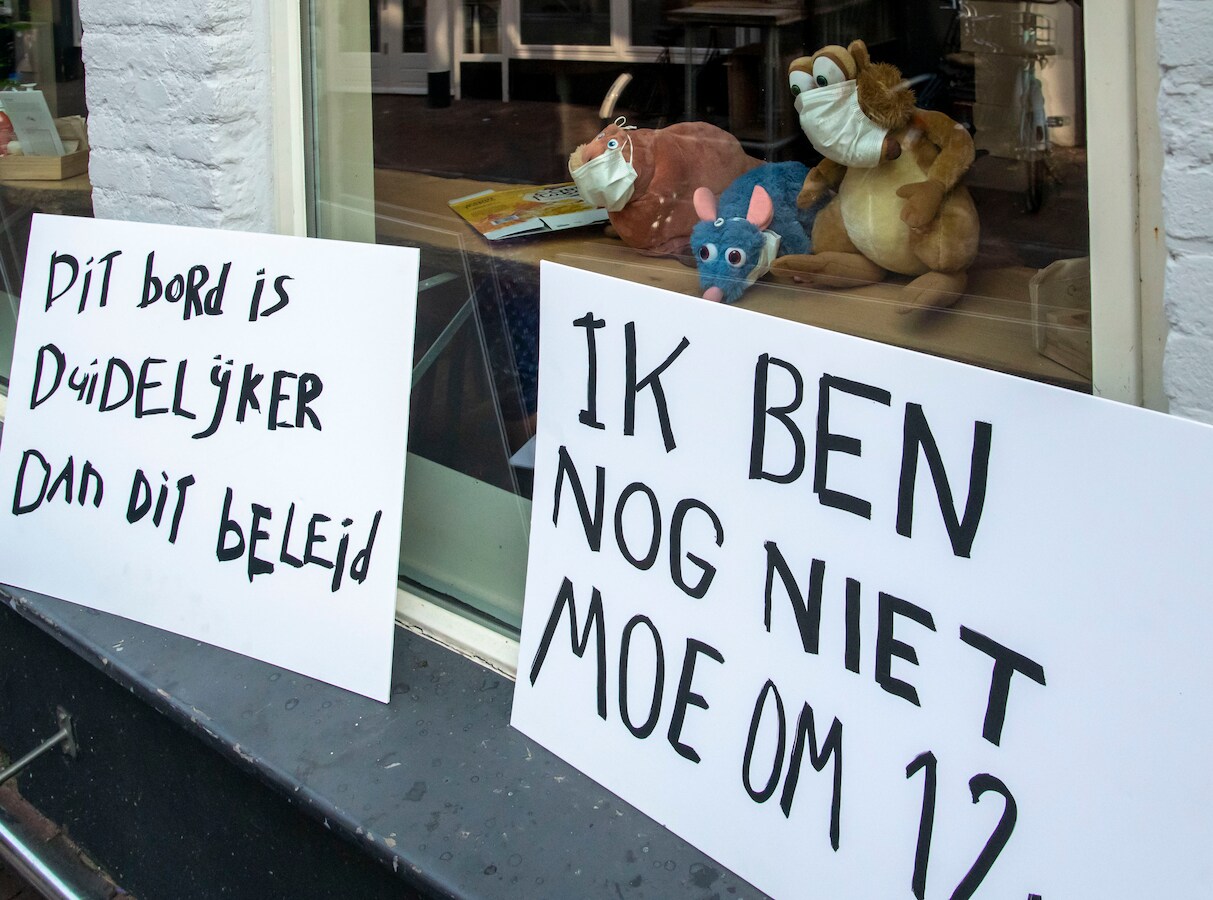 DiT boRd is
DUiDELijKER
DAn DiT bELEid
IK BEN
NOG NIET
MOE OM 12.